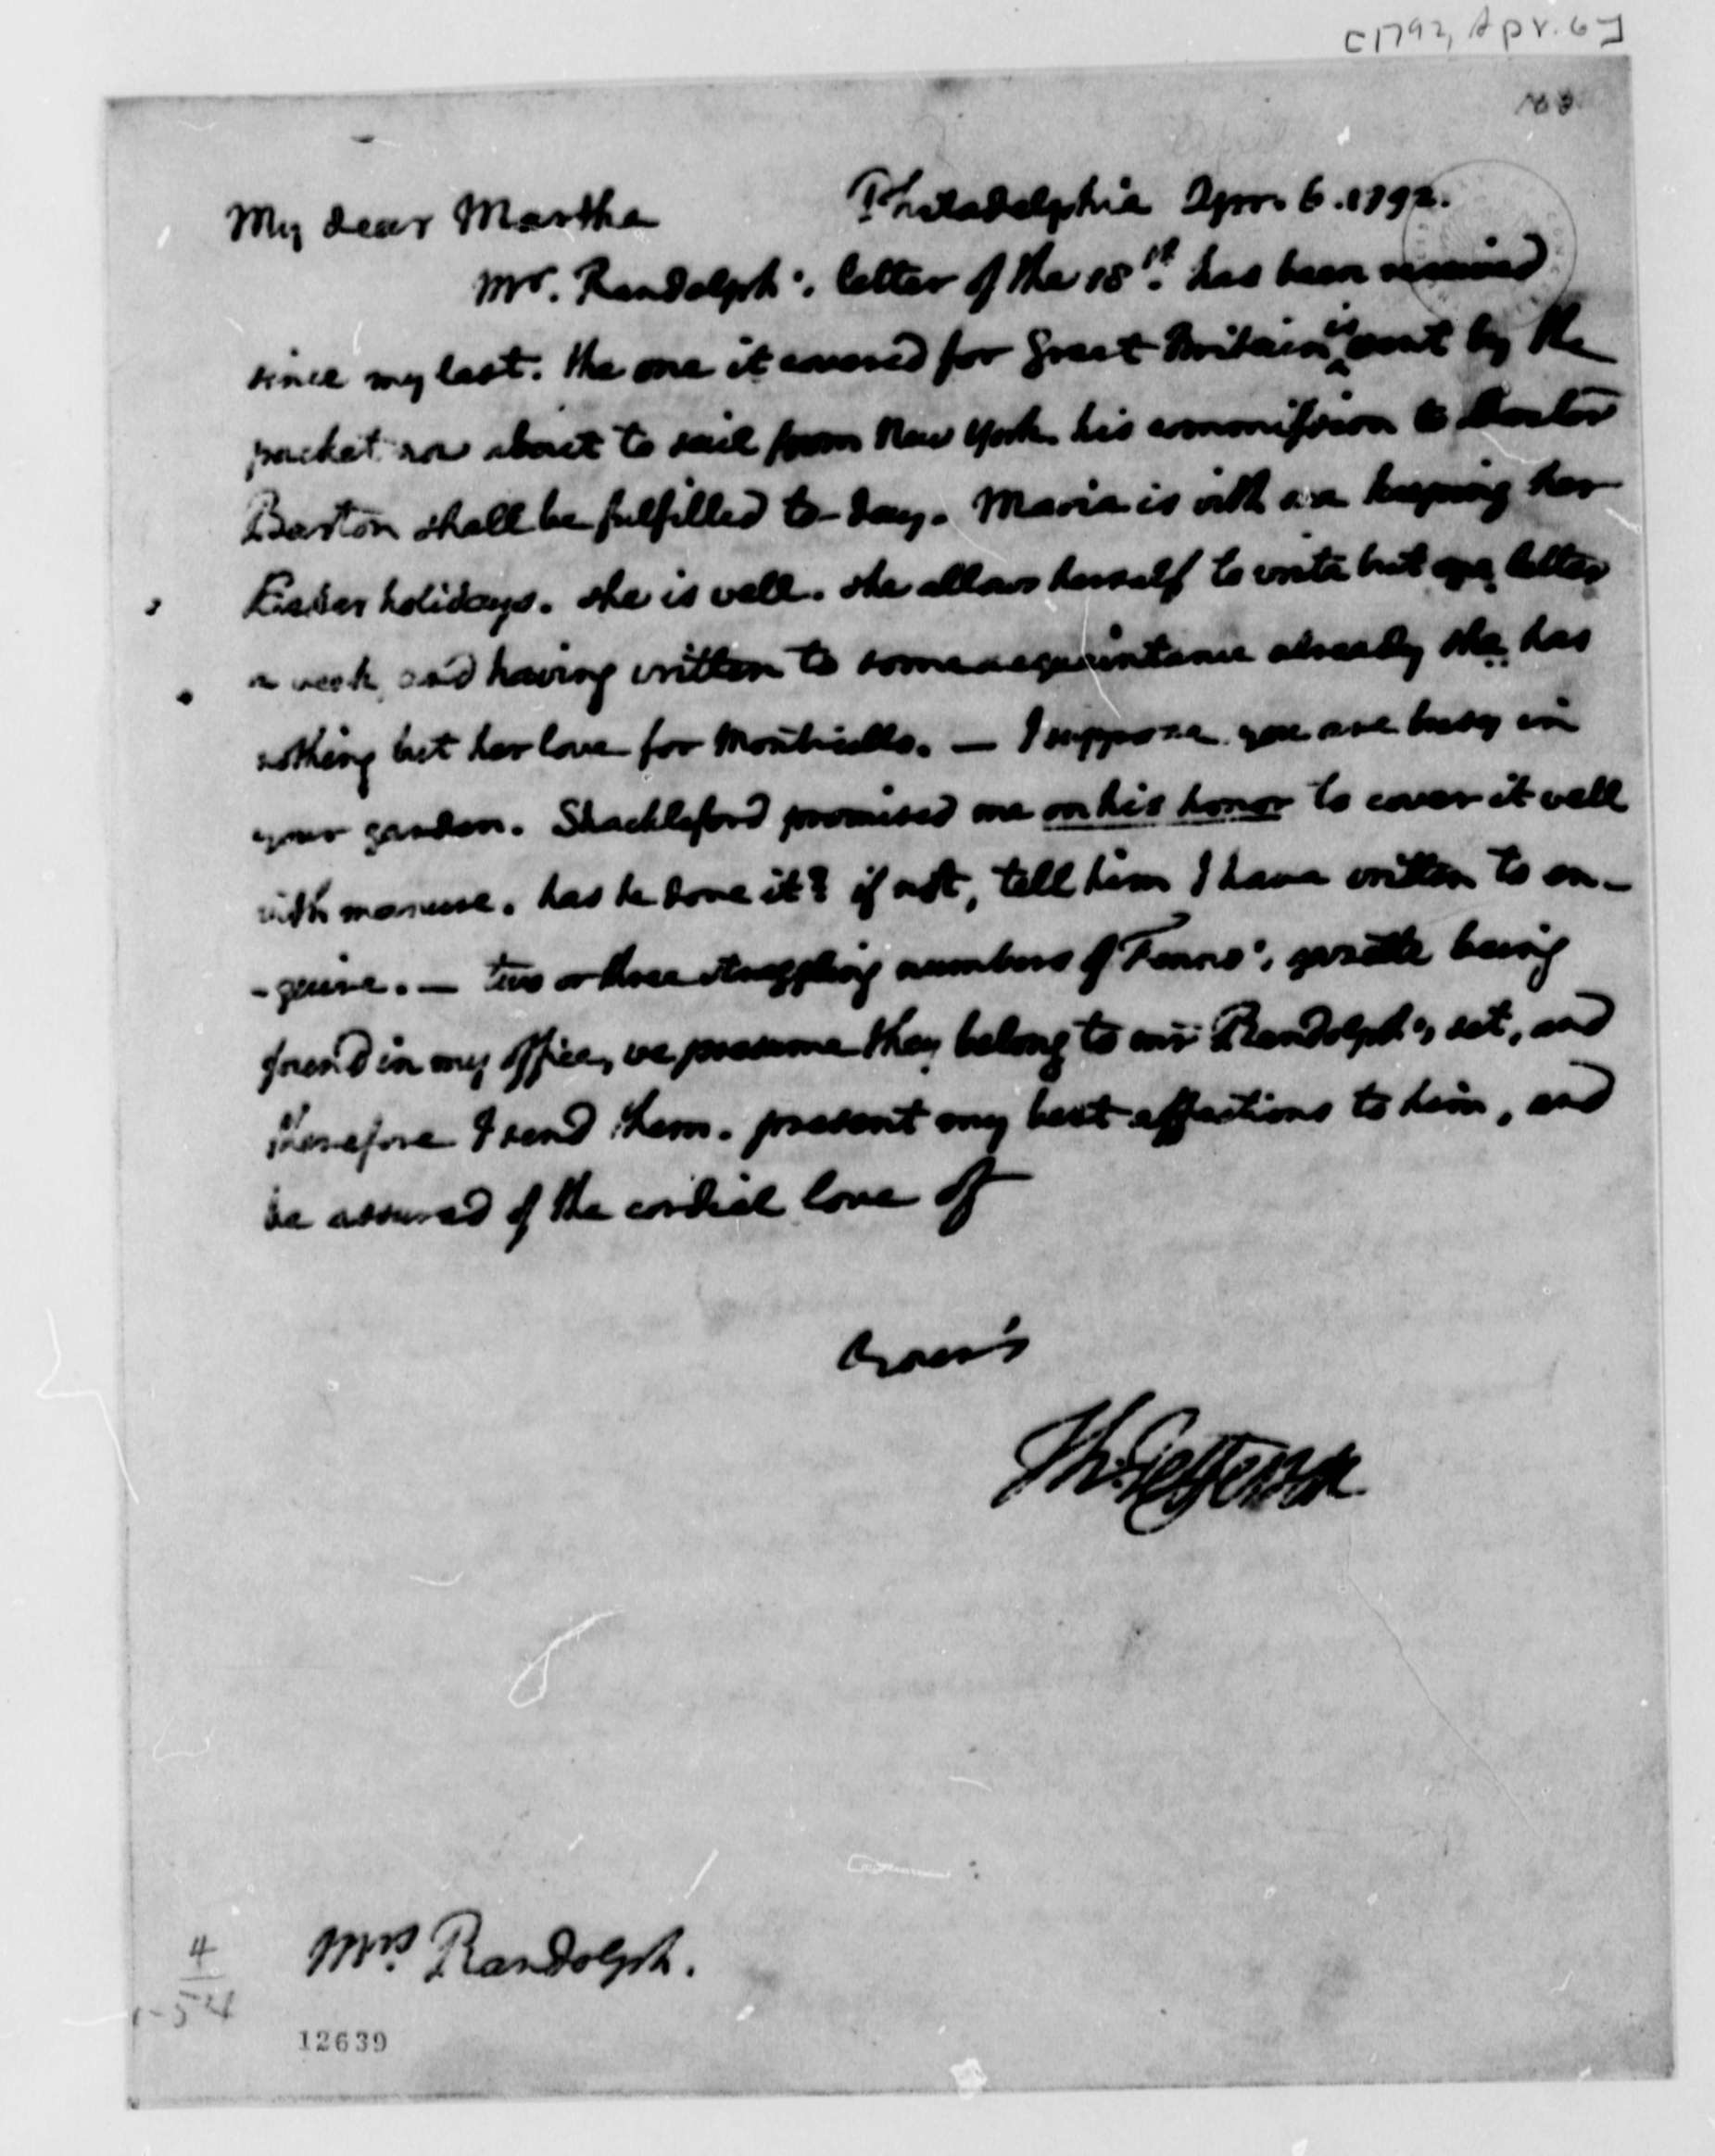 [1792, Apr. 6]
Philadelphia Apr. 6. 1792.
My dear Martha
Mr. Randolph's letter of the 18th. has been received
since my last. the one it covered for Great Britain is sent by the
packet now about to sail from New York. his commission to Doctor
Barton shall be fulfilled to-day. Maria is with me keeping her
Easter holidays. she is well. she allows herself to write but one letter
a week, and having written to some acquaintance already she has
nothing but her love for Monticello. — I suppose you are busy in
your garden. Shackleford promised me on his honor to cover it well
with manure. has he done it? if not, tell him I have written to en-
-quire. — two or three straggling numbers of Fenno's gazette being
found in my office, we presume they belong to mr Randolph's set, and
therefore I send them. present my best affections to him, and
be assured of the cordial love of
Your's
Th: Jefferson
Mrs. Randolph.
4
1-54
12639